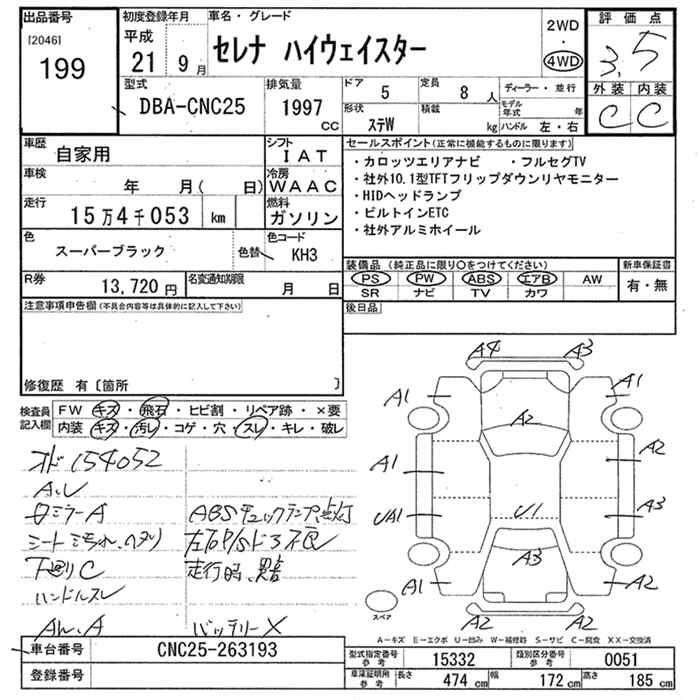 出品番号
[2046]
199
初度登録年月
平成
21 9 月
車名・グレード
セレナ ハイウェイスター
2WD
・
4WD
評価点
3.5
外装 内装
C C
型式
DBA-CNC25
排気量
1997 CC
ドア 5
定員 8 人
形状 ステW
積載 kg
ディーラー・並行
モデル年式 年
ハンドル 左・右
車歴
自家用
シフト
IAT
車検
年 月( 日)
冷房
WAAC
走行
15万4千053 km
燃料
ガソリン
色
スーパーブラック
色替
色コード
KH3
R券
13,720 円
名変通知期限
月 日
セールスポイント(正常に機能するものに限ります)
・カロッツエリアナビ ・フルセグTV
・社外10.1型TFTフリップダウンリヤモニター
・HIDヘッドランプ
・ビルトインETC
・社外アルミホイール
装備品(純正品に限り○をつけてください)
PS PW ABS エアB AW
SR ナビ TV カワ
新車保証書
有・無
後日品
注意事項申告欄(不具合内容等は具体的に記入して下さい)
修復歴 有〔箇所 〕
検査員記入欄
FW キズ・飛石・ヒビ割・リペア跡・×要
内装 キズ・汚レ・コゲ・穴・スレ・キレ・破レ
オド154052
A.U
ロミラーA
ABSチェックランプ点灯
シート汚れ、ヘタリ
下廻りC
走行時、異音
ハンドルスレ
バッテリーX
A4 A3
A1 A1
A2
A1 A2
UA1 U1 A3
A3
A1 A2
A2 A2
スペア
A-キズ E-エクボ U-凹み W-補修跡 S-サビ C-腐食 XX-交換済
車台番号
CNC25-263193
登録番号
型式指定番号 参考 15332
類別区分番号 参考 0051
車庫証明用 参考 長さ 474 cm 幅 172 cm 高さ 185 cm